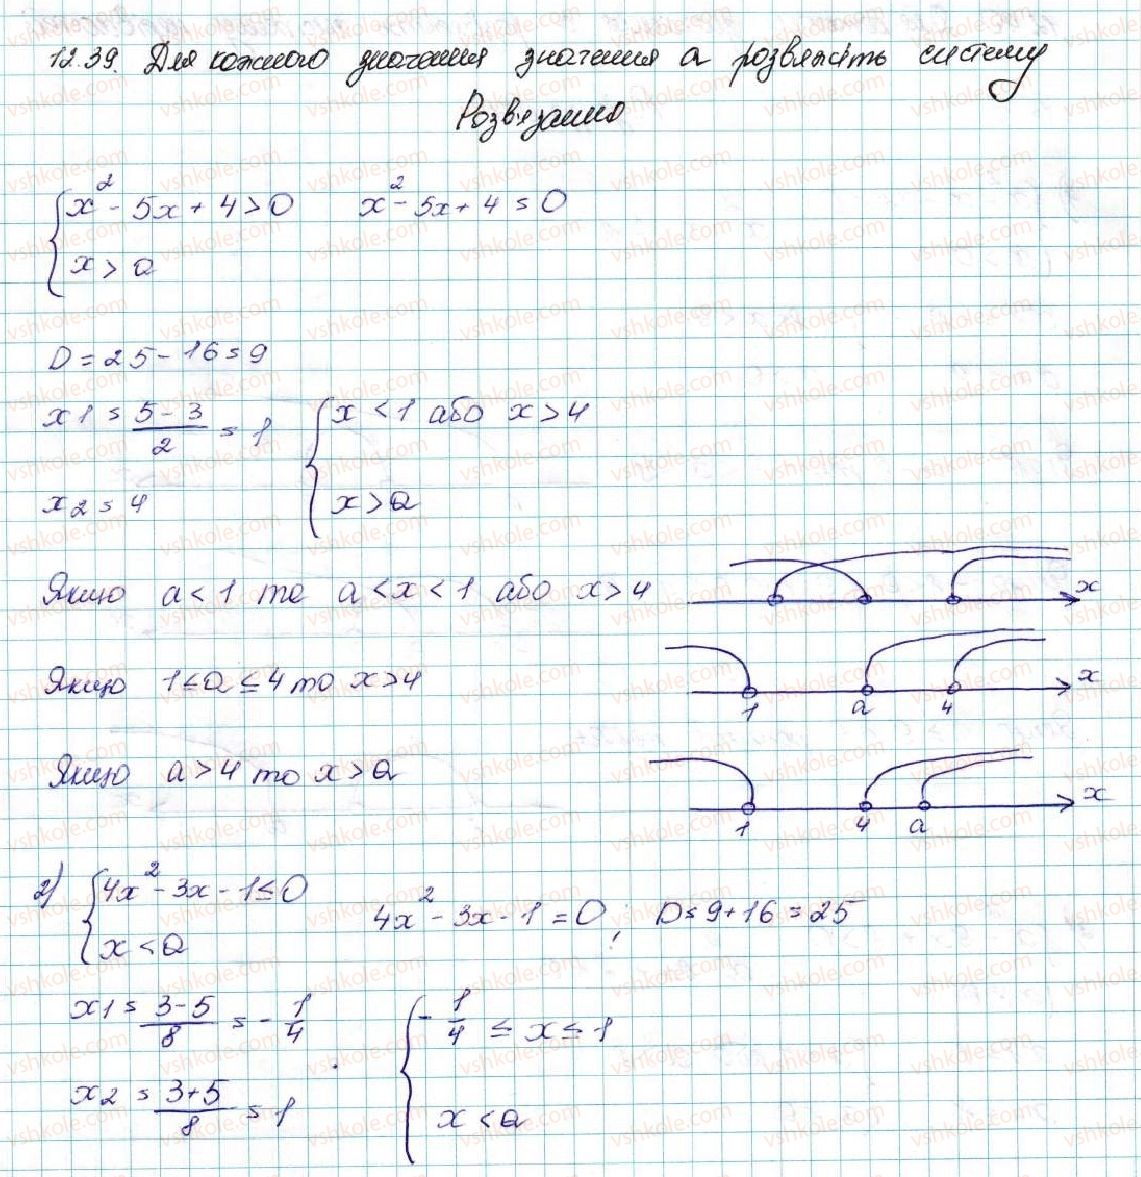 12.39. Для кожного значення значення а розвяжіть систему
Розв'язання
{ x² - 5x + 4 > 0    x² - 5x + 4 = 0
x > a
D = 25 - 16 = 9
x1 = (5 - 3)/2 = 1    { x < 1 або x > 4
x2 = 4    x > a
Якщо a < 1 то a < x < 1 або x > 4    x
Якщо 1 ≤ a ≤ 4 то x > 4    x
1 a 4
Якщо a > 4 то x > a    x
1 4 a
2) { 4x² - 3x - 1 ≤ 0    4x² - 3x - 1 = 0; D = 9 + 16 = 25
x < a
x1 = (3 - 5)/8 = -1/4    { -1/4 ≤ x ≤ 1
x2 = (3 + 5)/8 = 1    x < a
vshkole.com